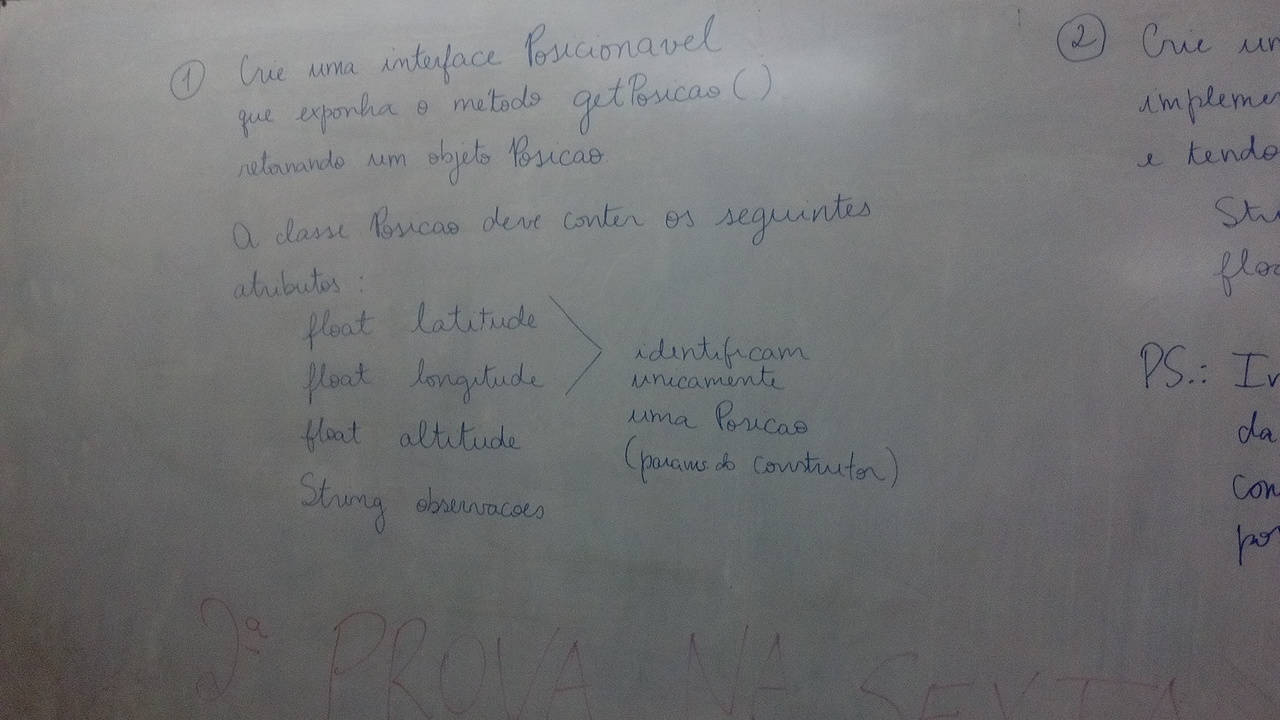 ① Crie uma interface Posicionavel
que exponha o método getPosicao()
retornando um objeto Posicao
A classe Posicao deve conter os seguintes
atributos:
float latitude
float longitude
float altitude
String observacoes
identificam
unicamente
uma Posicao
(params do construtor)
② Crie um
implemen
e tendo
Str
floa
PS.:
da
con
por
2ª PROVA NA SEXTA